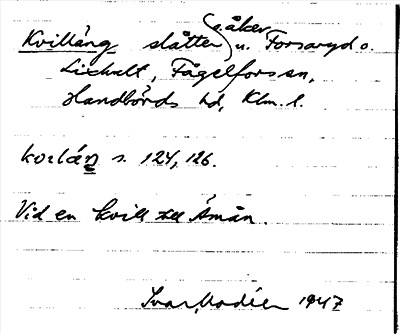 Kvilläng slåtter o. åker u. Forsaryd o.
Lixhult, Fågelfors sn,
Handbörds hd, Klm. l.
s. 124, 126.
Vid en kvill till Åmån.
Ivar Modéer 1947